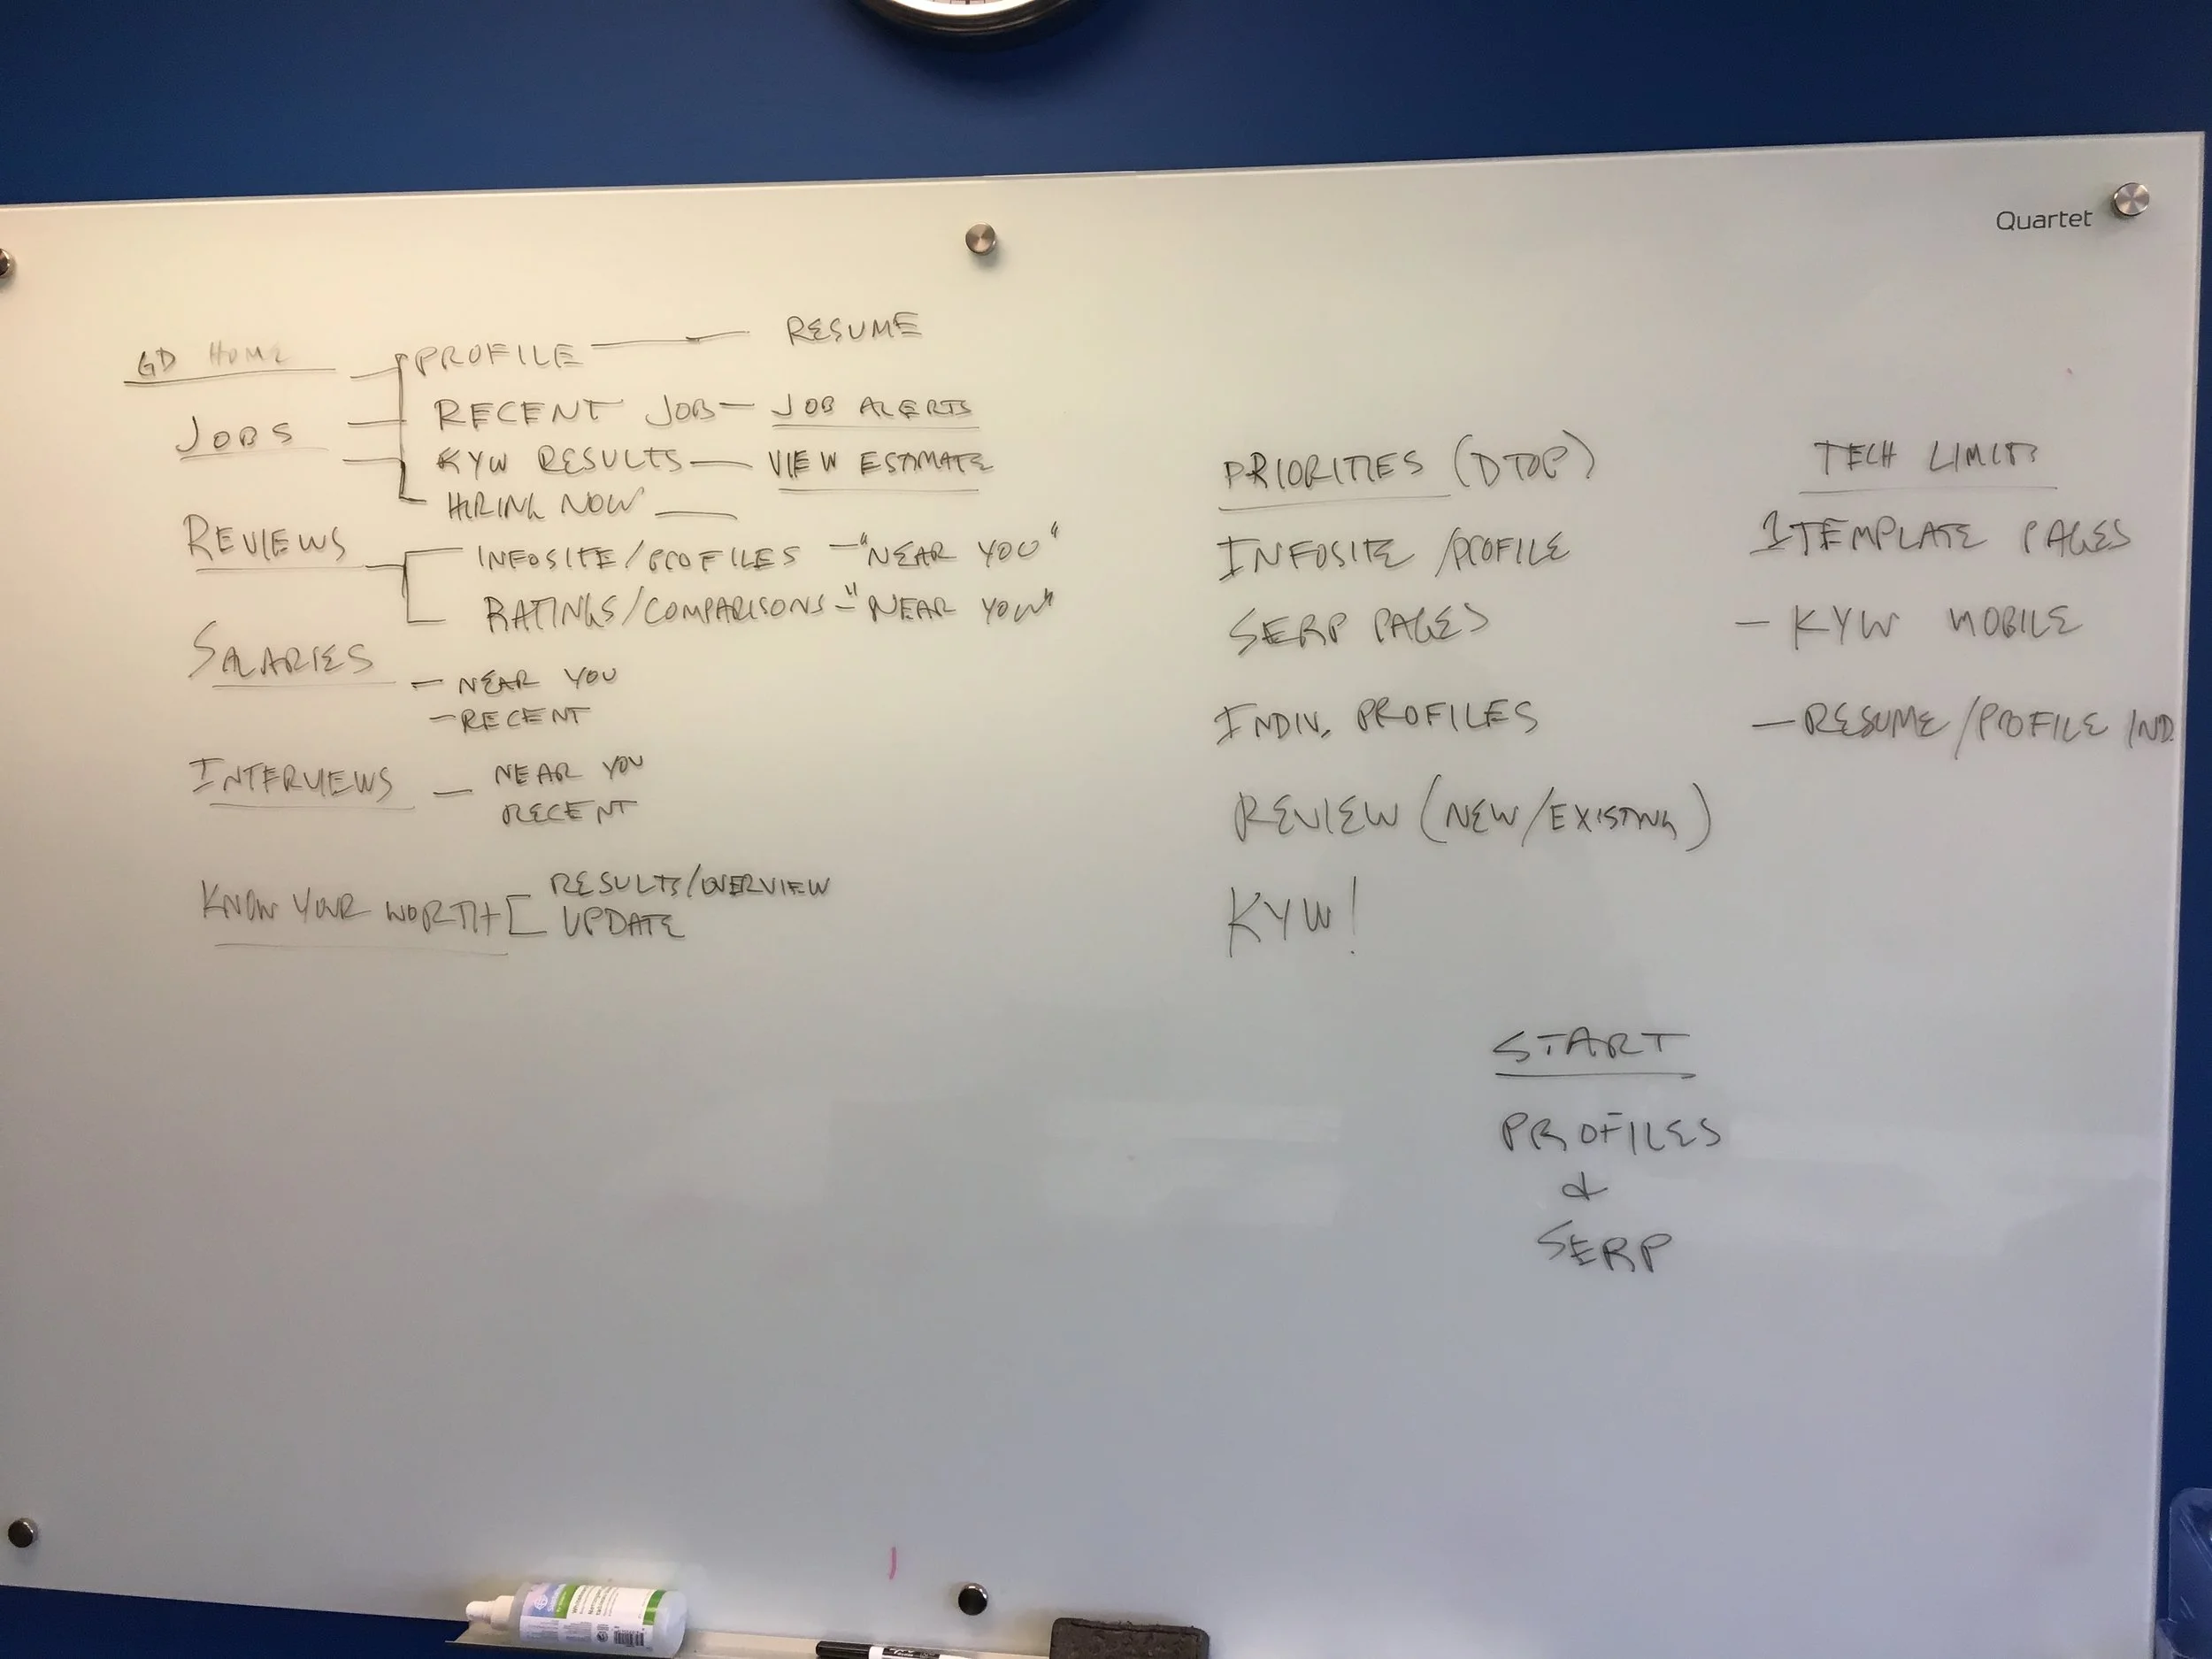 Quartet
GD HOME
PROFILE — RESUME
JOBS
RECENT JOB — JOB ALERTS
KYW RESULTS — VIEW ESTIMATE
HIRING NOW —
REVIEWS
INFOSITE/PROFILES — "NEAR YOU"
RATINGS/COMPARISONS — "NEAR YOU"
SALARIES
— NEAR YOU
— RECENT
INTERVIEWS — NEAR YOU
RECENT
KNOW YOUR WORTH
RESULTS/OVERVIEW
UPDATE
PRIORITIES (DTOP)
INFOSITE /PROFILE
SERP PAGES
INDIV. PROFILES
REVIEW (NEW/EXISTING)
KYW!
TECH LIMITS
1 TEMPLATE PAGES
— KYW MOBILE
— RESUME/PROFILE IND.
START
PROFILES
&
SERP